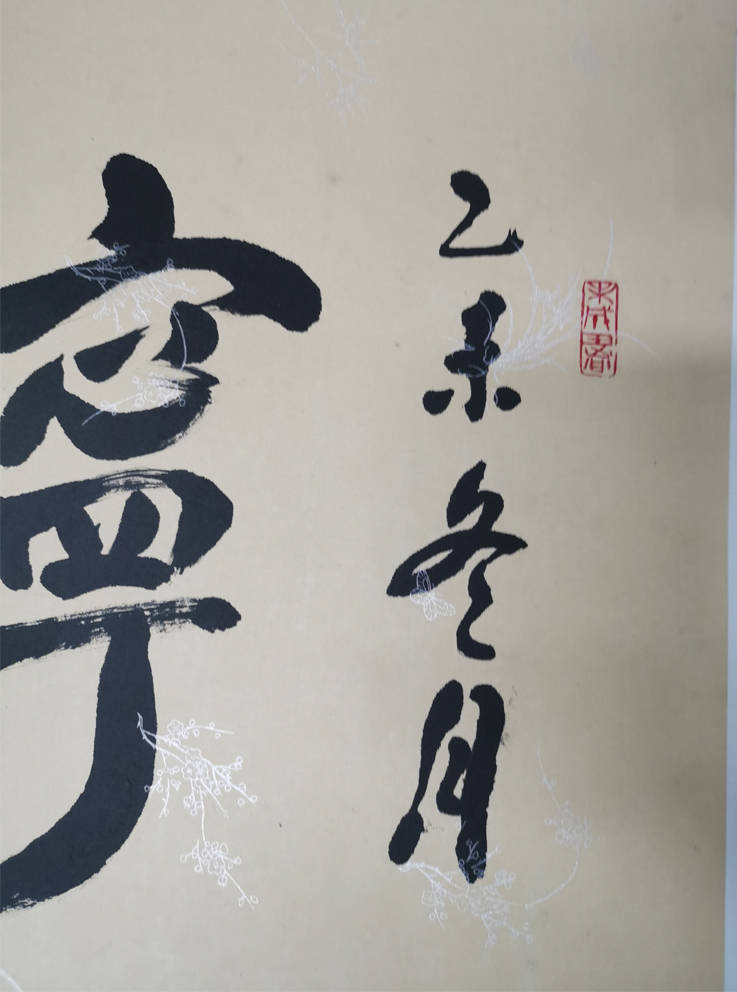 乙未冬月
寧